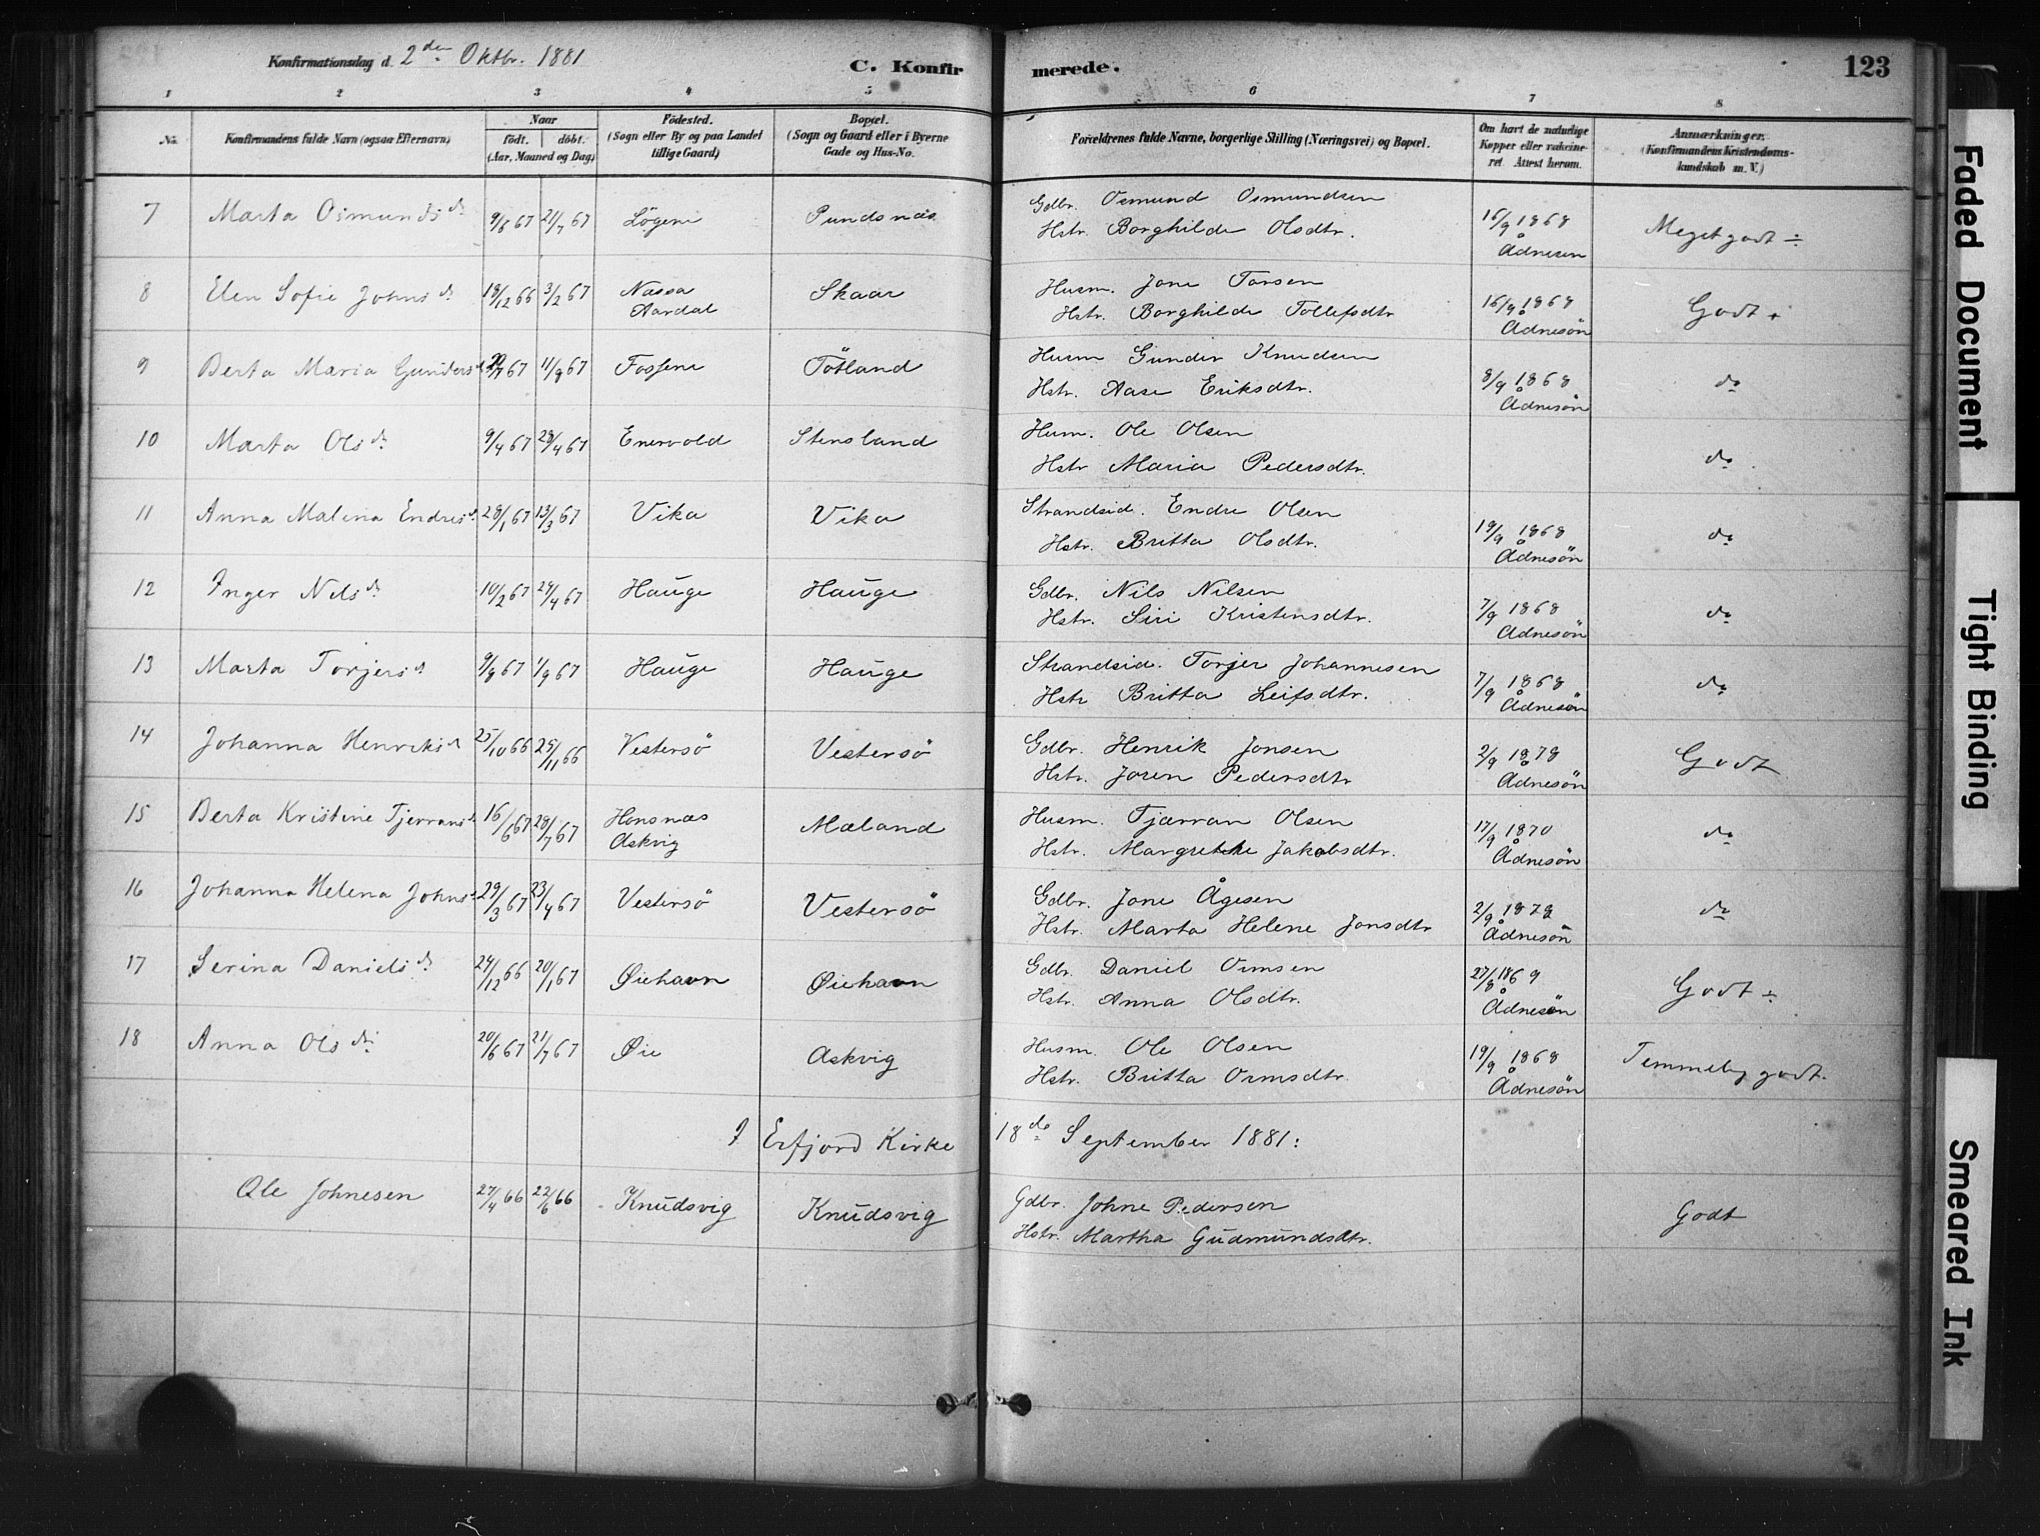 Konfirmationsdag d. 2den Oktbr. 1881
C. Konfirmerede.
123
1 2 3 4 5 6 7 8
No. Konfirmandens fulde Navn (ogsaa Efternavn) Naar Födt. döbt. (Aar, Maaned og Dag) Födested. (Sogn eller By og paa Landet tillige Gaard) Bopæl. (Sogn og Gaard eller i Byerne Gade og Hus-No. Forældrenes fulde Navne, borgerlige Stilling (Næringsvei) og Bopæl. Om havt de naturlige Kopper eller vakcineret. Attest herom. Anmærkninger. (Konfirmandens Kristendomskundskab m. V.)
7 Marta Osmundsdr 9/6 67 21/7 67 Lögene Pundsnæs Gdbr. Osmund Osmundsen 16/9 1868 Meget godt ÷
Hstr. Borghilde Olsdtr. Ådnesen
8 Elen Sofie Johnsdr 18/12 66 3/2 67 Nassa Skaar Husm. Jone Torsen 16/9 1868 Godt +
Aardal Hstr. Borghilde Tollefsdtr Ådnesön
9 Berta Maria Gundersd 67 11/8 67 Fossene Tötland Husm Gunder Knudsen 8/9 1868 do
Hstr. Aase Eriksdtr. Ådnesön
10 Marta Olsdr 9/4 67 28/4 67 Enervold Stensland Husm. Ole Olsen do
Hstr Maria Pedersdtr.
11 Anna Malena Endresd 28/1 67 13/3 67 Vika Vika Strandsid. Endre Olsen 19/9 1868 do
Hstr. Britta Olsdtr. Ådnesön
12 Inger Nilsdr 10/2 67 24/4 67 Hauge Hauge Gdbr. Nils Nilsen 7/9 1868 do
Hstr. Siri Kristensdtr. Ådnesön
13 Marta Torjersd 9/8 67 1/9 67 Hauge Hauge Strandsid. Torjer Johannesen 7/9 1868 do
Hstr Britta Leifsdtr. Ådnesön
14 Johanna Henriksd 25/10 66 25/11 66 Vestersö Vestersö Gdbr. Henrik Jonsen 2/9 1878 Godt
Hstr. Joren Pedersdtr Ådnesön
15 Berta Kristine Tjerransd 16/6 67 28/7 67 Honsnæs Mæland Husm. Tjærran Olsen 17/9 1870 do
Askvig Hstr. Margrethe Jakobsdtr. Ådnesön
16 Johanna Helena Johnsd 29/3 67 23/4 67 Vestersö Vestersö Gdbr. Jone Ågesen 2/9 1878 do
Hstr. Marta Helene Jonsdtr Ådnesön
17 Serina Danielsdr 24/12 66 20/1 67 Øiehavn Øiehavn Gdbr. Daniel Ormsen 27/8 1869 Godt ÷
Hstr. Anna Olsdtr. Ådnesön
18 Anna Olsdr 20/6 67 21/7 67 Øie Askvig Husm. Ole Olsen 19/9 1868 Temmelig godt.
Hstr. Britta Ormsdtr. Ådnesön
I Erfjord Kirke 18de September 1881:
Ole Johnesen 27/4 66 22/6 66 Knudsvig Knudsvig Gdbr. Johne Pedersen Godt
Hstr. Martha Gudmundsdtr.
Faded Document
Tight Binding
Smeared Ink